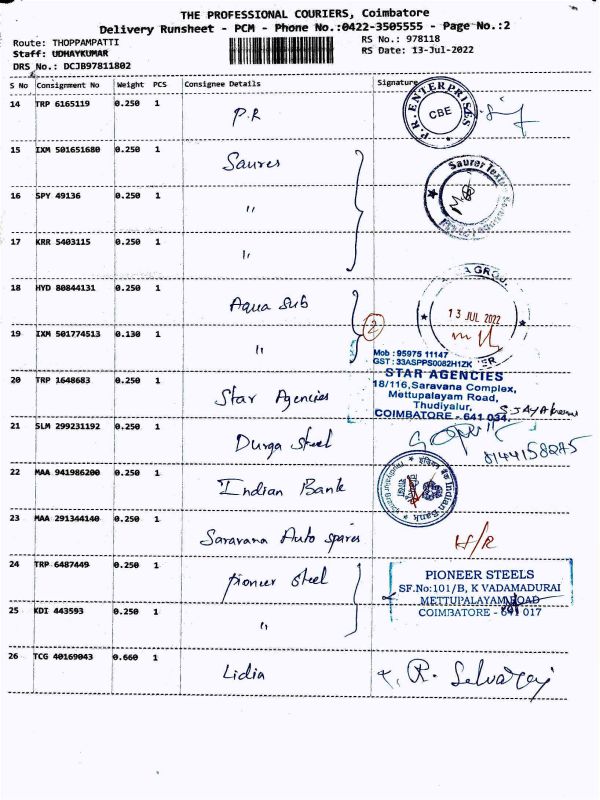 THE PROFESSIONAL COURIERS, Coimbatore
Delivery Runsheet - PCM - Phone No.:0422-3505555 - Page No.:2
Route: THOPPAMPATTI
RS No.: 978118
Staff: UDHAYKUMAR
RS Date: 13-Jul-2022
DRS No.: DCJB97811802
S No Consignment No Weight PCS Consignee Details Signature
14 TRP 6165119 0.250 1 P.R
P.R. ENTERPRISES
CBE
15 IXM 501651680 0.250 1 Saurer
Saurer Textile
16 SPY 49136 0.250 1 "
17 KRR 5403115 0.250 1 "
18 HYD 80844131 0.250 1 Aqua Sub
13 JUL 2022
2
19 IXM 501774513 0.130 1 "
Mob : 95975 11147
GST : 33ASPPS0082H1ZK
STAR AGENCIES
18/116, Saravana Complex,
Mettupalayam Road,
Thudiyalur,
COIMBATORE - 641 034.
20 TRP 1648683 0.250 1 Star Agencies
21 SLM 299231192 0.250 1 Durga Steel
22 MAA 941986200 0.250 1 Indian Bank
Indian Bank
23 MAA 291344140 0.250 1 Saravana Auto spares
H/R
24 TRP 6487449 0.250 1 Pioneer Steel
PIONEER STEELS
SF.No:101/B, K VADAMADURAI
METTUPALAYAM ROAD
COIMBATORE - 641 017
25 KDI 443593 0.250 1 "
26 TCG 40169043 0.660 1 Lidia
R. Selvaraj